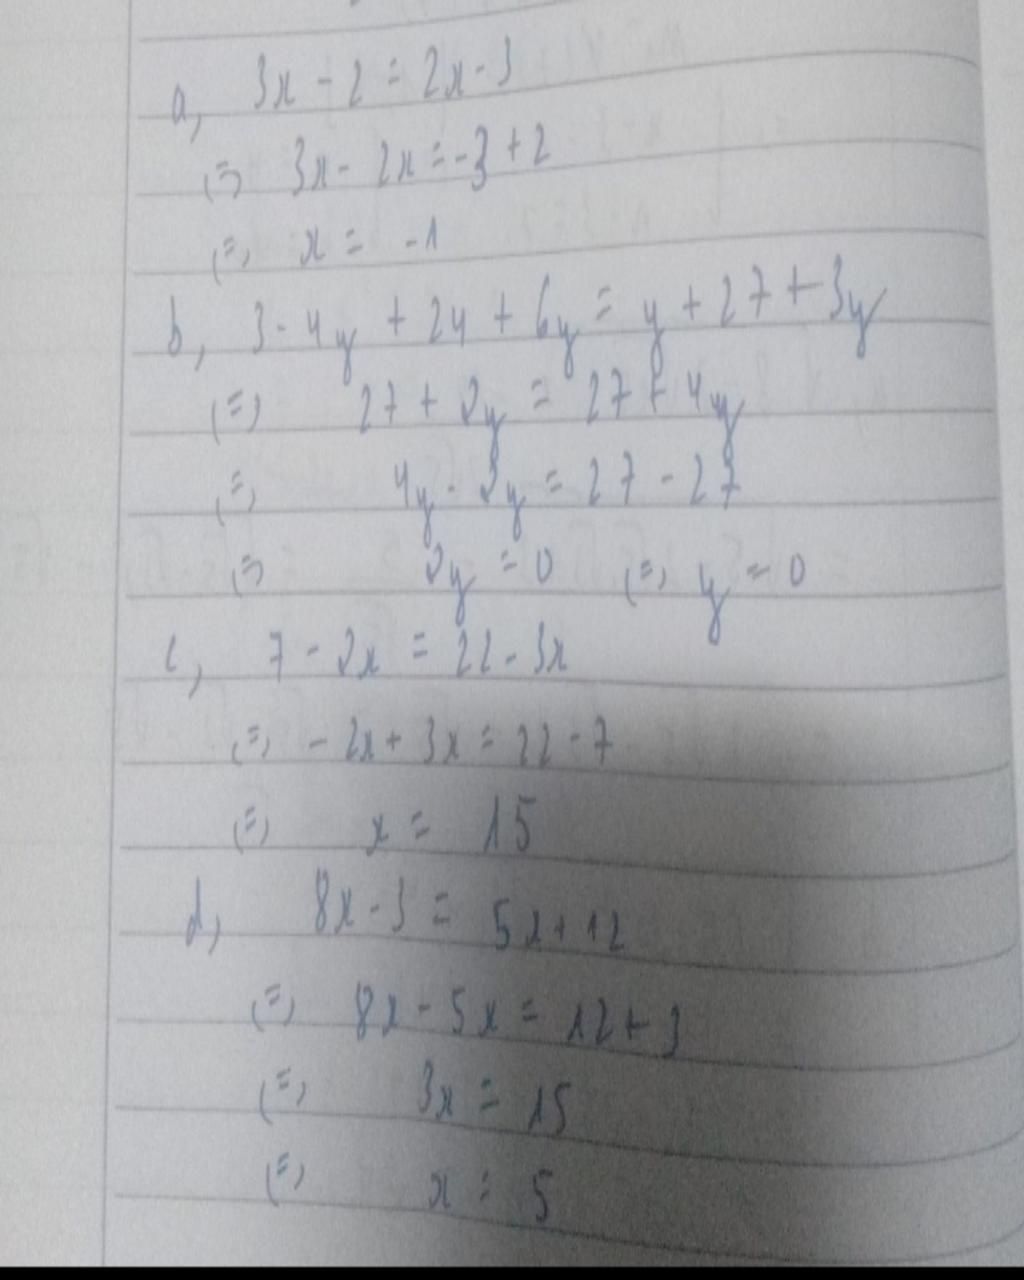 a, 3x - 2 = 2x - 3
(=) 3x - 2x = -3 + 2
(=) x = -1
b, 3 - 4y + 24 + 6y = y + 27 + 3y
(=) 27 + 2y = 27 + 4y
(=) 4y - 2y = 27 - 27
(=) 2y = 0 (=) y = 0
c, 7 - 2x = 22 - 3x
(=) - 2x + 3x = 22 - 7
(=) x = 15
d, 8x - 3 = 5x + 12
(=) 8x - 5x = 12 + 3
(=) 3x = 15
(=) x = 5